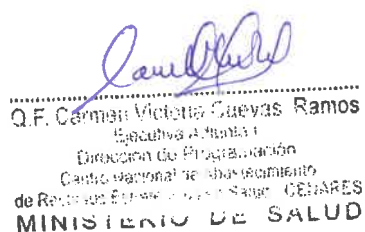 Q.F. Carmen Victoria Cuevas Ramos
Ejecutiva Adjunta I
Dirección de Programación
Centro Nacional de Abastecimiento
de Recursos Salud - CENARES
MINISTERIO DE SALUD